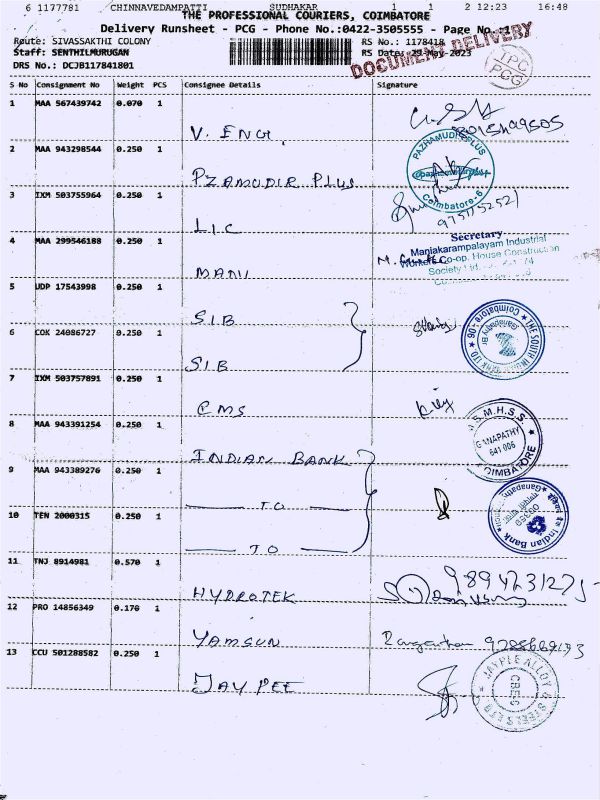 6 1177781 CHINNAVEDAMPATTI SUDHAKAR 1 1 2 12:23 16:48
THE PROFESSIONAL COURIERS, COIMBATORE
Delivery Runsheet - PCG - Phone No.:0422-3505555 - Page No.:1
Route: SIVASSAKTHI COLONY RS No.: 1178418
Staff: SENTHILMURUGAN RS Date: 29-May-2023
DRS No.: DCJB117841801
DOCUMENT DELIVERY
TPC PCG
S No Consignment No Weight PCS Consignee Details Signature
1 MAA 567439742 0.070 1
V. ENGI
2 MAA 943298544 0.250 1
PAZHAMUDIR PLUS
Coimbatore-6
PZAMUDIR PLUS
3 IXM 503755964 0.250 1
LIC
Secretary
Maniakarampalayam Industrial
Workers Co-op. House Construction
Society Ltd.
4 MAA 299546188 0.250 1
MANI
5 UDP 17543998 0.250 1
SIB
THE SOUTH INDIAN BANK LTD. Coimbatore-06
Ganapathy Br
6 COK 24086727 0.250 1
SIB
7 IXM 503757891 0.250 1
CMS
S.M.H.S.S.
GANAPATHY
641 006
COIMBATORE
8 MAA 943391254 0.250 1
INDIAN BANK
9 MAA 943389276 0.250 1
Indian Bank
TO
10 TEN 2000315 0.250 1
TO
11 TNJ 8914981 0.570 1
HYDROTEK
12 PRO 14856349 0.170 1
YAMSUN
13 CCU 501288582 0.250 1
JAYPEE
JAYPEE ALLOY & STEELS LTD
CBEC